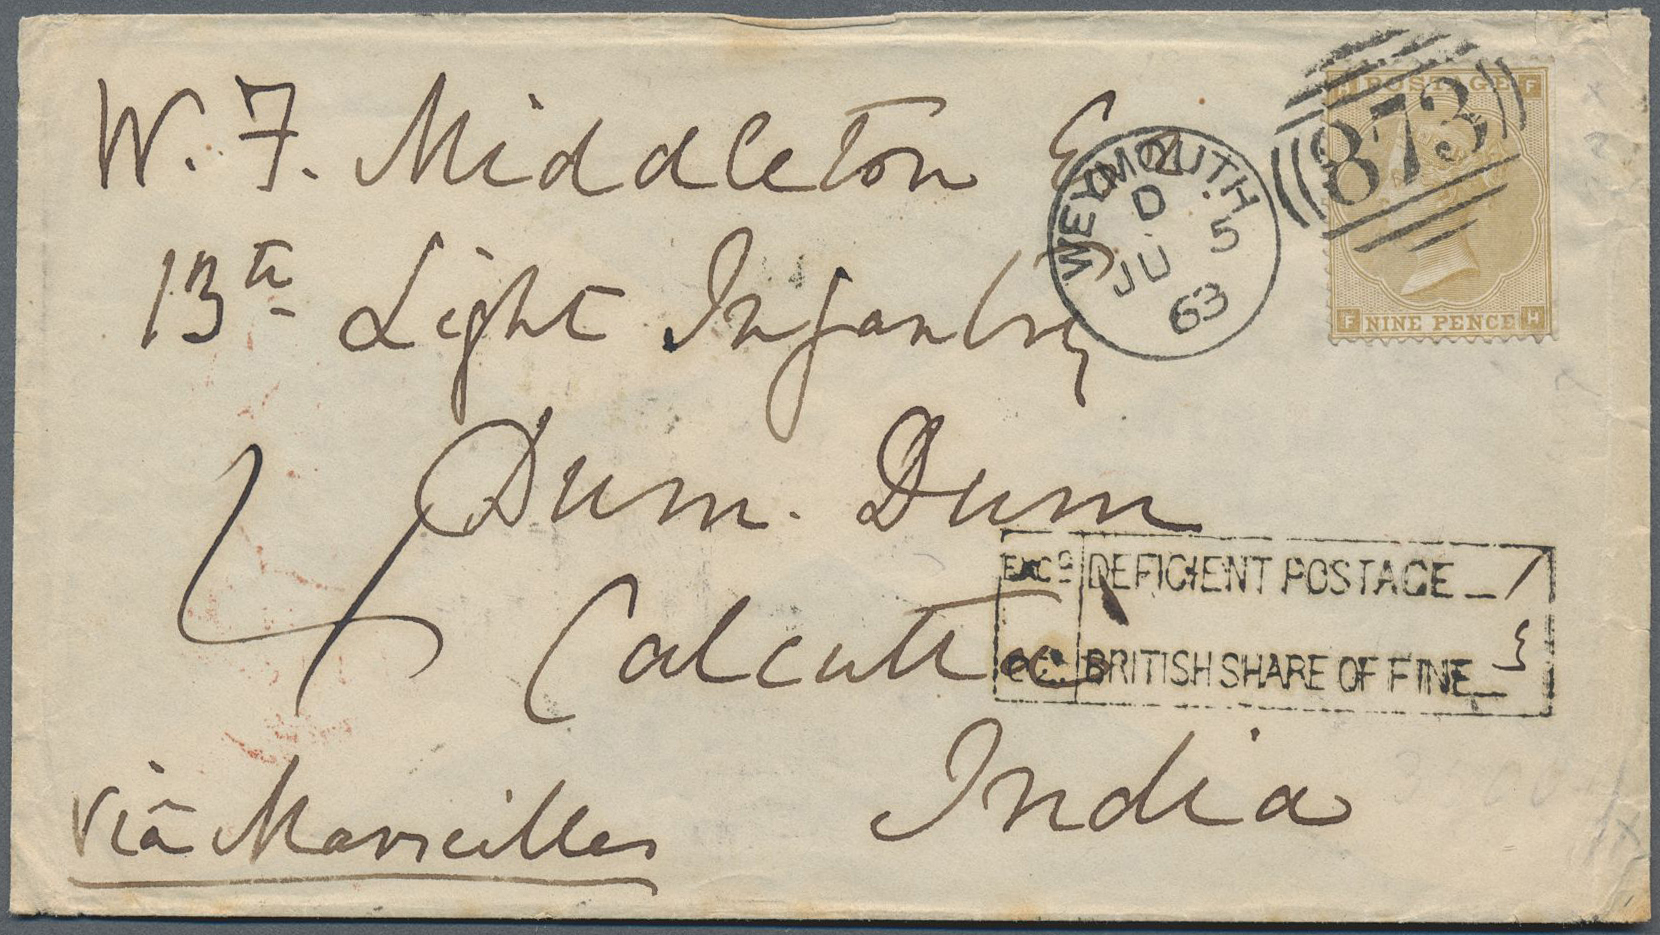 W. F. Middleton E
13th Light Infantry
Dum. Dum
Calcutta
India
via Marseilles
WEYMOUTH
D
JU 5
63
873
H POSTAGE F
F NINE PENCE H
DEFICIENT POSTAGE
BRITISH SHARE OF FINE